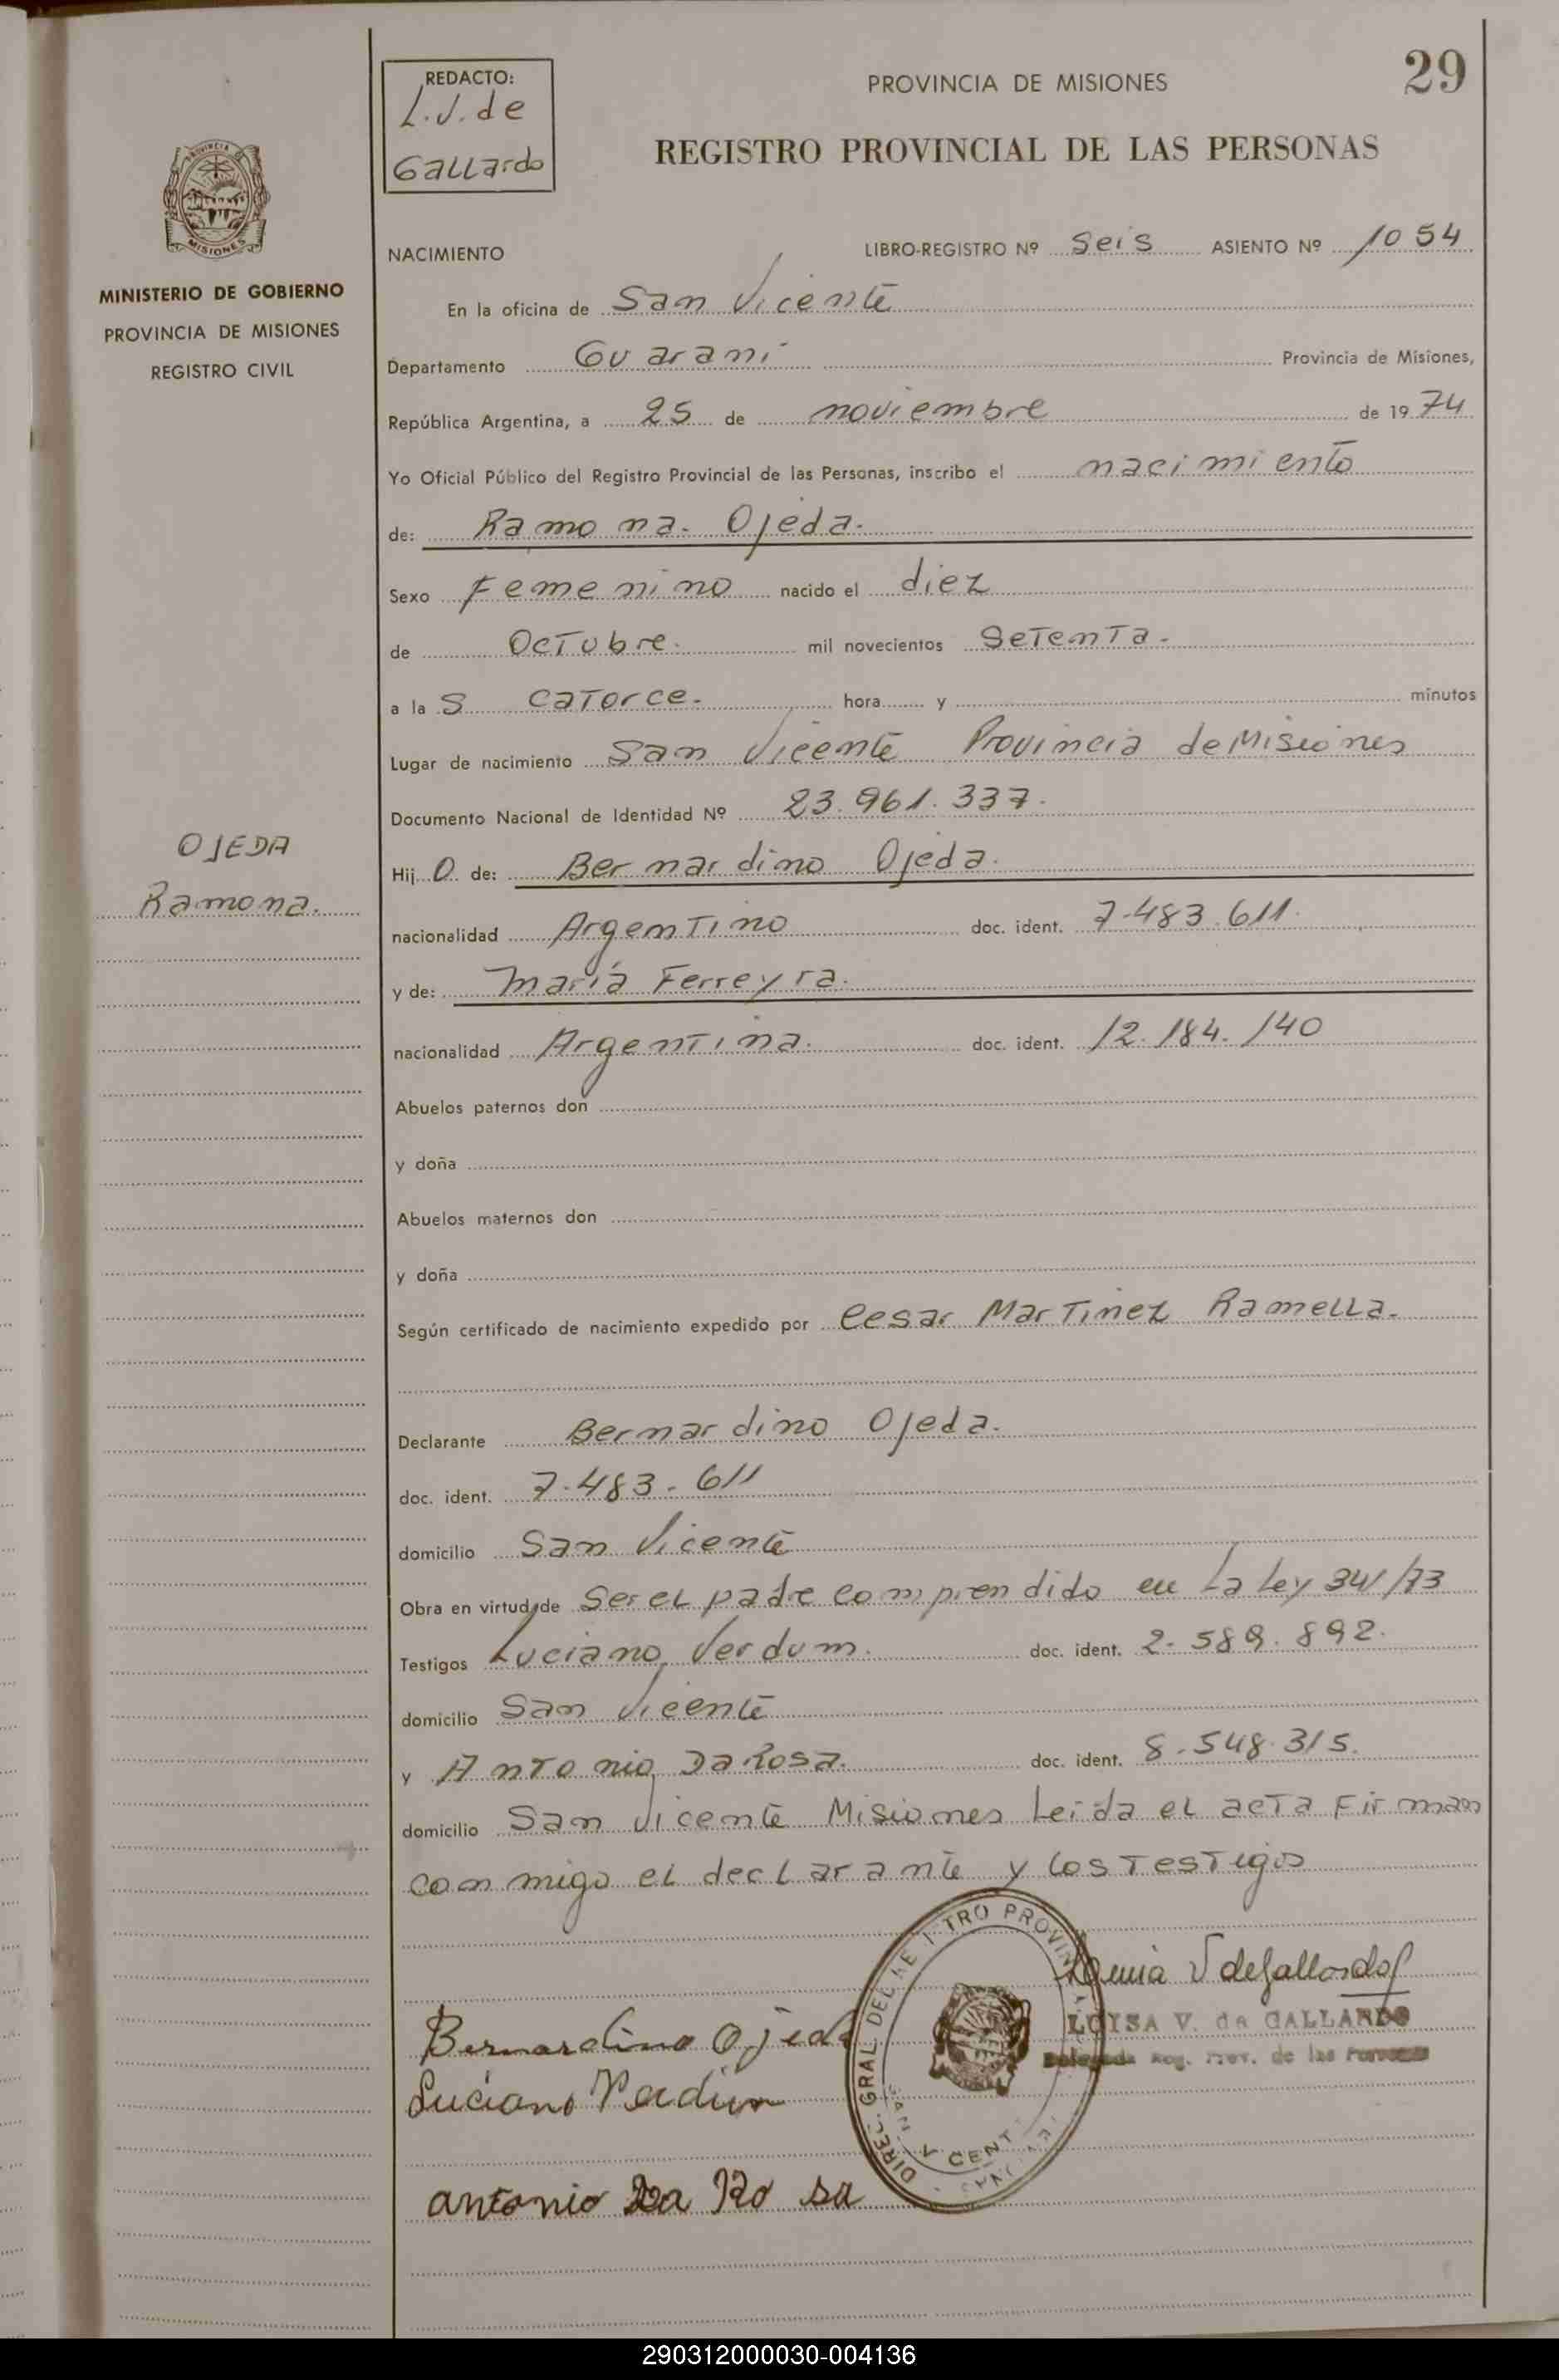 REDACTO:
L.V. de
Gallardo
PROVINCIA DE MISIONES
29
REGISTRO PROVINCIAL DE LAS PERSONAS
PROVINCIA
MISIONES
MINISTERIO DE GOBIERNO
PROVINCIA DE MISIONES
REGISTRO CIVIL
NACIMIENTO LIBRO-REGISTRO Nº Seis ASIENTO Nº 1054
En la oficina de San Vicente
Departamento Guaraní Provincia de Misiones,
República Argentina, a 25 de noviembre de 1974
Yo Oficial Público del Registro Provincial de las Personas, inscribo el nacimiento
de: Ramona. Ojeda.
Sexo Femenino nacido el diez
de Octubre. mil novecientos Setenta.
a la S catorce. hora y minutos
Lugar de nacimiento San Vicente Provincia de Misiones
Documento Nacional de Identidad Nº 23.961.337.
OJEDA
Ramona.
Hij O de: Bernardino Ojeda.
nacionalidad Argentino doc. ident. 7.483.611.
y de: María Ferreyra.
nacionalidad Argentina. doc. ident. 12.184.140
Abuelos paternos don
y doña
Abuelos maternos don
y doña
Según certificado de nacimiento expedido por Cesar Martinez Ramella.
Declarante Bernardino Ojeda.
doc. ident. 7.483.611
domicilio San Vicente
Obra en virtud de Ser el padre comprendido en La Ley 341/73
Testigos Luciano Verdum. doc. ident. 2.589.892.
domicilio San Vicente
y Antonio Da Rosa. doc. ident. 8.548.315.
domicilio San Vicente Misiones Leida el acta Firman
conmigo el declarante y los Testigos
Bernardino Ojeda
Luciano Verdum
antonio Da Ro sa
V de Gallardo
LUISA V. de GALLARDO
Delegada Reg. Prov. de las Personas
DIREC. GRAL. DEL REGISTRO PROVIN
SAN VICENTE
290312000030-004136